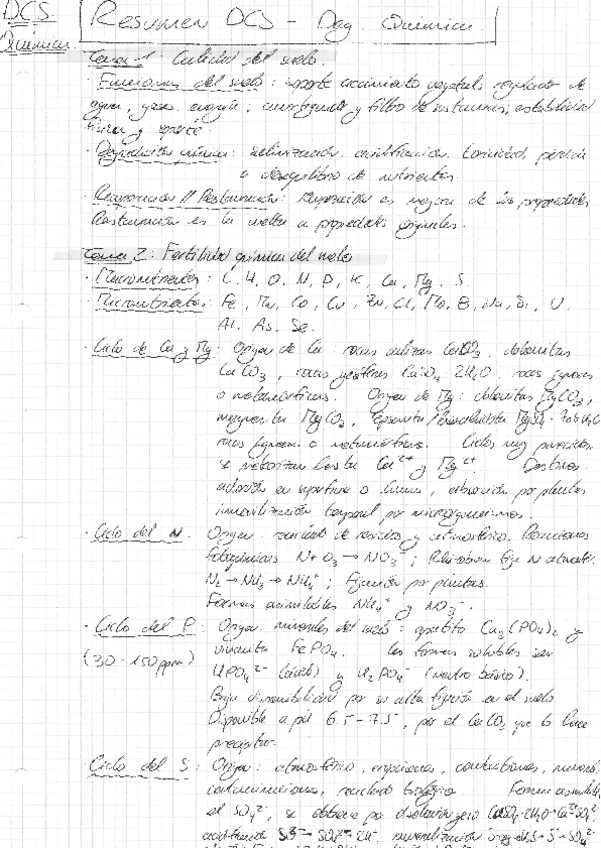 DCS
Química
Resumen DCS - Deg. Química
Tema 1: Calidad del suelo.
· Funciones del suelo: soporte crecimiento vegetal, regulador de
agua, gases, energía; amortiguador y filtro de sustancias; estabilidad
física y soporte.
· Degradación química: salinización, acidificación, toxicidad, pérdida
o desequilibrio de nutrientes
· Recuperación // Restauración: Recuperación es mejora de las propiedades
Restauración es la vuelta a propiedades originales.
Tema 2: Fertilidad química del suelo
· Macronutrientes: C, H, O, N, P, K, Ca, Mg, S.
· Micronutrientes: Fe, Mn, Co, Cu, Zn, Cl, Mo, B, Na, Si, V,
Al, As, Se.
· Ciclo de Ca y Mg: Origen de Ca rocas calizas CaCO3, dolomitas
CaCO3, rocas yesíferas CaSO4 2H2O, rocas ígneas
o metamórficas. Origen de Mg: dolomitas MgCO3,
magnesita MgCO3, Epsomita / MgSO4 · 7 o 6 H2O
rocas ígneas o metamórficas. Ciclos muy parecidos
se meteorizan hasta Ca2+ y Mg2+ Destinos
adsorción en superficie o humus, absorción por plantas
inmovilización temporal por microorganismos.
· Ciclo del N. Origen: reciclado de residuos y atmosférico. Reacciones
fotoquímicas N + O3 → NO3-; Rhizobium fija N atmosf.
N2 → NH3 → NH4+; fijación por plantas.
Formas asimilables NH4+ y NO3-.
· Ciclo del P: Origen minerales del suelo: apatito Ca3(PO4)2 y
(30-150ppm) vivianita FePO4. Las formas solubles son
HPO4 2- y H2PO4- (neutro básico).
Baja disponibilidad por su alta fijación en el suelo
Disponible a pH 6.5-7.5, por el CaCO3 que lo hace
precipitar.
Ciclo del S: Origen: atmosférico, erupciones, combustiones, mineral,
contaminaciones, reciclado biológico. Forma asimilable
el SO4 2-, se obtiene por disolución yeso CaSO4·2H2O
acidificación mineralización